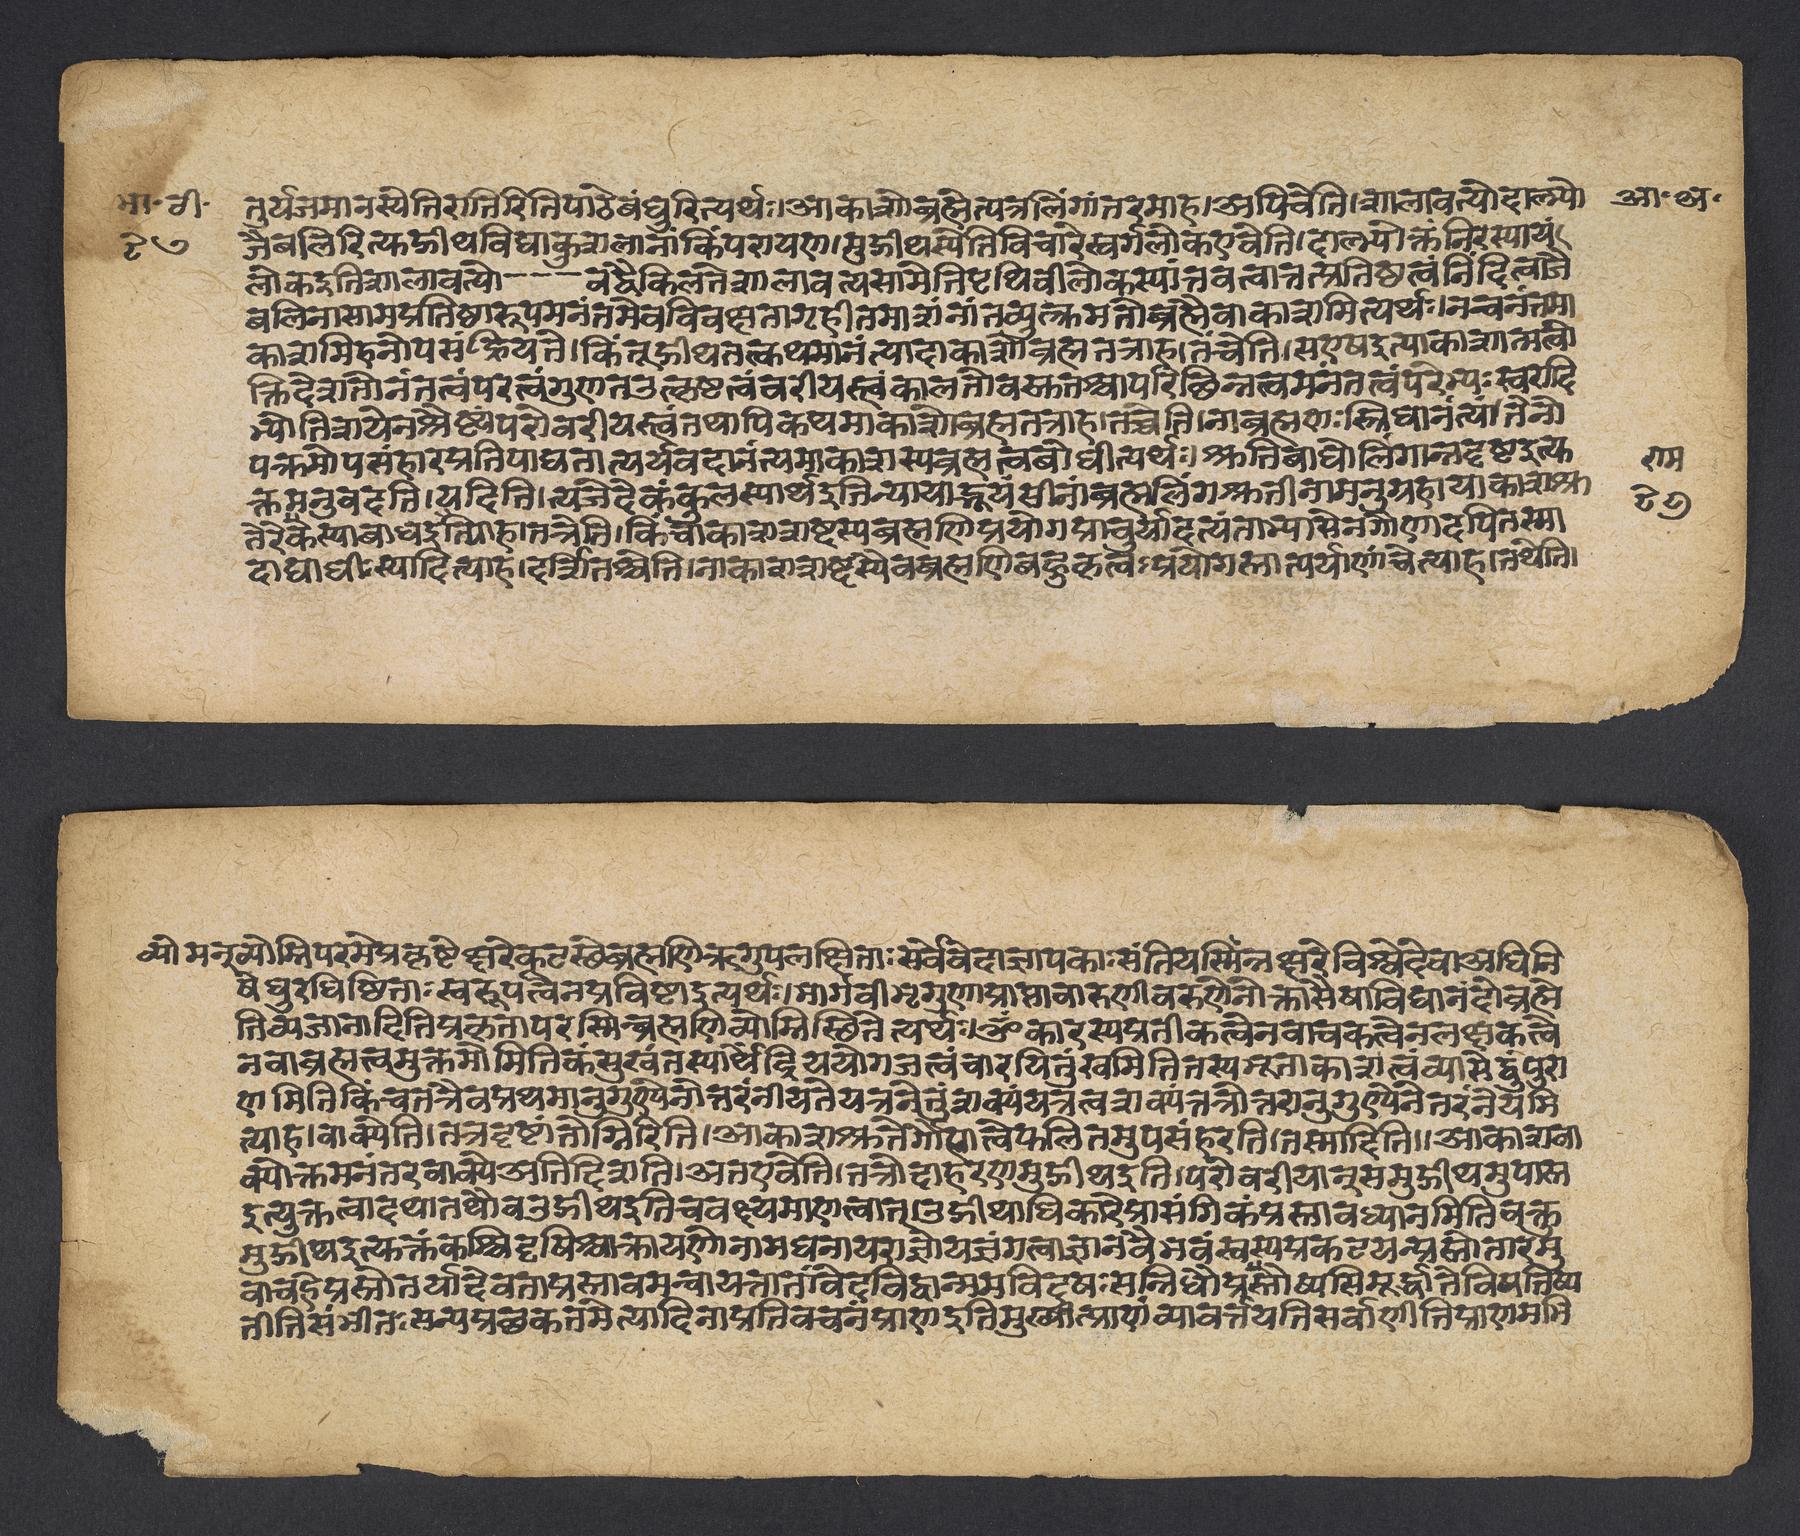 भा॰टी॰
२७
आ॰अ॰
राम
२७
तुर्यजमानस्येतिरातिरितिपाठेबंधुरित्यर्थः।आकाशोब्रह्मेत्यत्रलिंगांतरमाह।अपिचेति।शालावत्योदाल्भ्यो
जैबलिरित्यद्गीथविद्याकुशलानांकिंपरायण।मुद्गीथस्येतिविचारेस्वर्गलोकएवेति।दाल्भ्योक्तंनिरस्यायं
लोकइतिशालावत्यो----वद्वैकिलतेशालावत्यसामेतिपृथिवीलोकस्यांतवत्वान्नप्रतिष्ठात्वंनिंदित्वाजै
बलिनासामप्रतिष्ठारूपमनंतमेवविवक्षतागृहीतमाशांनांतव्युत्क्रमतोब्रह्मैवाकाशमित्यर्थः।नन्वनंतमा
काशमिहनोपसंह्रियते।किंनूद्गीथतत्कथमानंत्यादाकाशोब्रह्मतत्राह।तंचेति।सएषइत्याकाशात्मत्वो
क्तिदेशतोनंतत्वंपरत्वंगुणतउत्कृष्टत्वंवरीयस्त्वंकालतोवस्तुतश्चापरिछिन्नत्वमनंतत्वंपरेभ्यःस्वरादि
भ्योतिशयेनश्रैष्ठ्यंपरोवरीयस्त्वंतथापिकथमाकाशोब्रह्मतत्राह।तच्चेति।नाब्रह्मणःस्त्रिधानंत्यं।तेनो
पक्रमोपसंहारप्रतिपाद्यतात्पर्यवदानंत्यमाकाशस्यब्रह्मत्वबोधीत्यर्थः।श्रुतिबाधोलिंगान्नदृष्टइत्यु
क्तमनुवदति।यदिति।त्यजेदेकंकुलस्यार्थइतिन्यायाद्भूयसीनांब्रह्मलिंगश्रुतीनामनुग्रहायाकाशश्रु
तेरेकस्याबाधइत्याह।तत्रेति।किंचाकाशशब्दस्यब्रह्मणिप्रयोगप्राचुर्यादत्यंताभ्यासेनगौणादपितस्मा
दाद्याधीःस्यादित्याह।दर्शितश्चेति।नाकाशशब्दस्यैवब्रह्मणिबहुकृत्वःप्रयोगस्तात्पर्याणांचेत्याह।तथेति।
व्योमन्व्योम्निपरमेप्रकृष्टेक्षरेकूटस्थेब्रह्मणिऋगुपलक्षिताःसर्वेवेदाज्ञापकाःसंतियस्मिन्नक्षरेविश्वेदेवाअधिनि
षेधुरधिष्ठिताःस्वरूपत्वेनप्रविष्टाइत्यर्थः।भार्गवीभृगुणाप्राप्तावारुणीवरुणेनोक्तासैषाविद्यानंदोब्रह्मे
तिव्यजानादितिप्रकृतापरस्मिन्ब्रह्मणिव्योम्निस्थितेत्यर्थः।ॐकारस्यप्रतीकत्वेनवाचकत्वेनलक्षकत्वे
नवाब्रह्मत्वमुक्तमोमितिकंसुखंतस्यार्थेंद्रिययोगजत्वंवारयितुंखमितितस्यभूताकाशत्वंव्यासेद्धुंपुरा
णमितिकिंचतत्रैवप्रथमानुगुण्येनोत्तरंनीयतेयत्रनेतुंशक्यंयत्रत्वशक्यंतत्रोत्तरानुगुण्येनेतरंनेयमि
त्याह।वाक्येति।तत्रदृष्टांतोग्निरिति।आकाशश्रुतेर्गौणत्वेफलितमुपसंहरति।तस्मादिति।।आकाशवा
क्योक्तमनंतरवाक्येअतिदिशति।अतएवेति।तत्रोदाहरणमुद्गीथइति।परोवरीयान्समुद्गीथमुपास्त
इत्युक्तत्वादथातथौवउद्गीथइतिचवक्ष्यमाणत्वात्।उद्गीथाधिकारेप्रासंगिकंप्रस्तावध्यानमितिवक्तु
मुद्गीथइत्युक्तंकश्चिदृषिश्चाक्रायणोनामधनायराज्ञोयज्ञंगत्वाज्ञानवैभवंस्वस्यप्रकटयन्प्रस्तोतारमु
वाचहेप्रस्तोतर्यादेवताप्रस्तावमन्वायत्तातांचेदविद्वान्ममविदुषःसन्निधौप्रस्तोष्यसिमूर्द्धातेविपतिष्य
तीतिसंभीतःसन्पप्रछकतमेत्यादिनाप्रतिवचनंप्राणइतिमुख्यंप्राणंव्यावर्त्तयतिसर्वाणीतिप्राणमभि